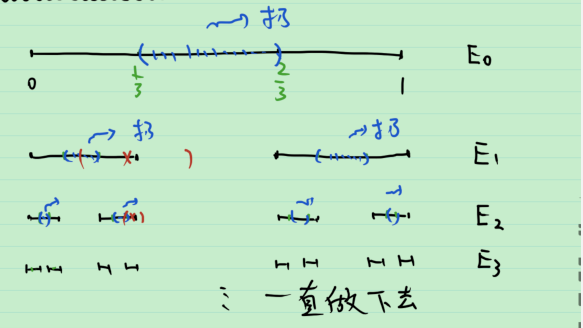 扔
E₀
0 1/3 2/3 1
扔 扔
E₁
E₂
E₃
⋮ 一直做下去